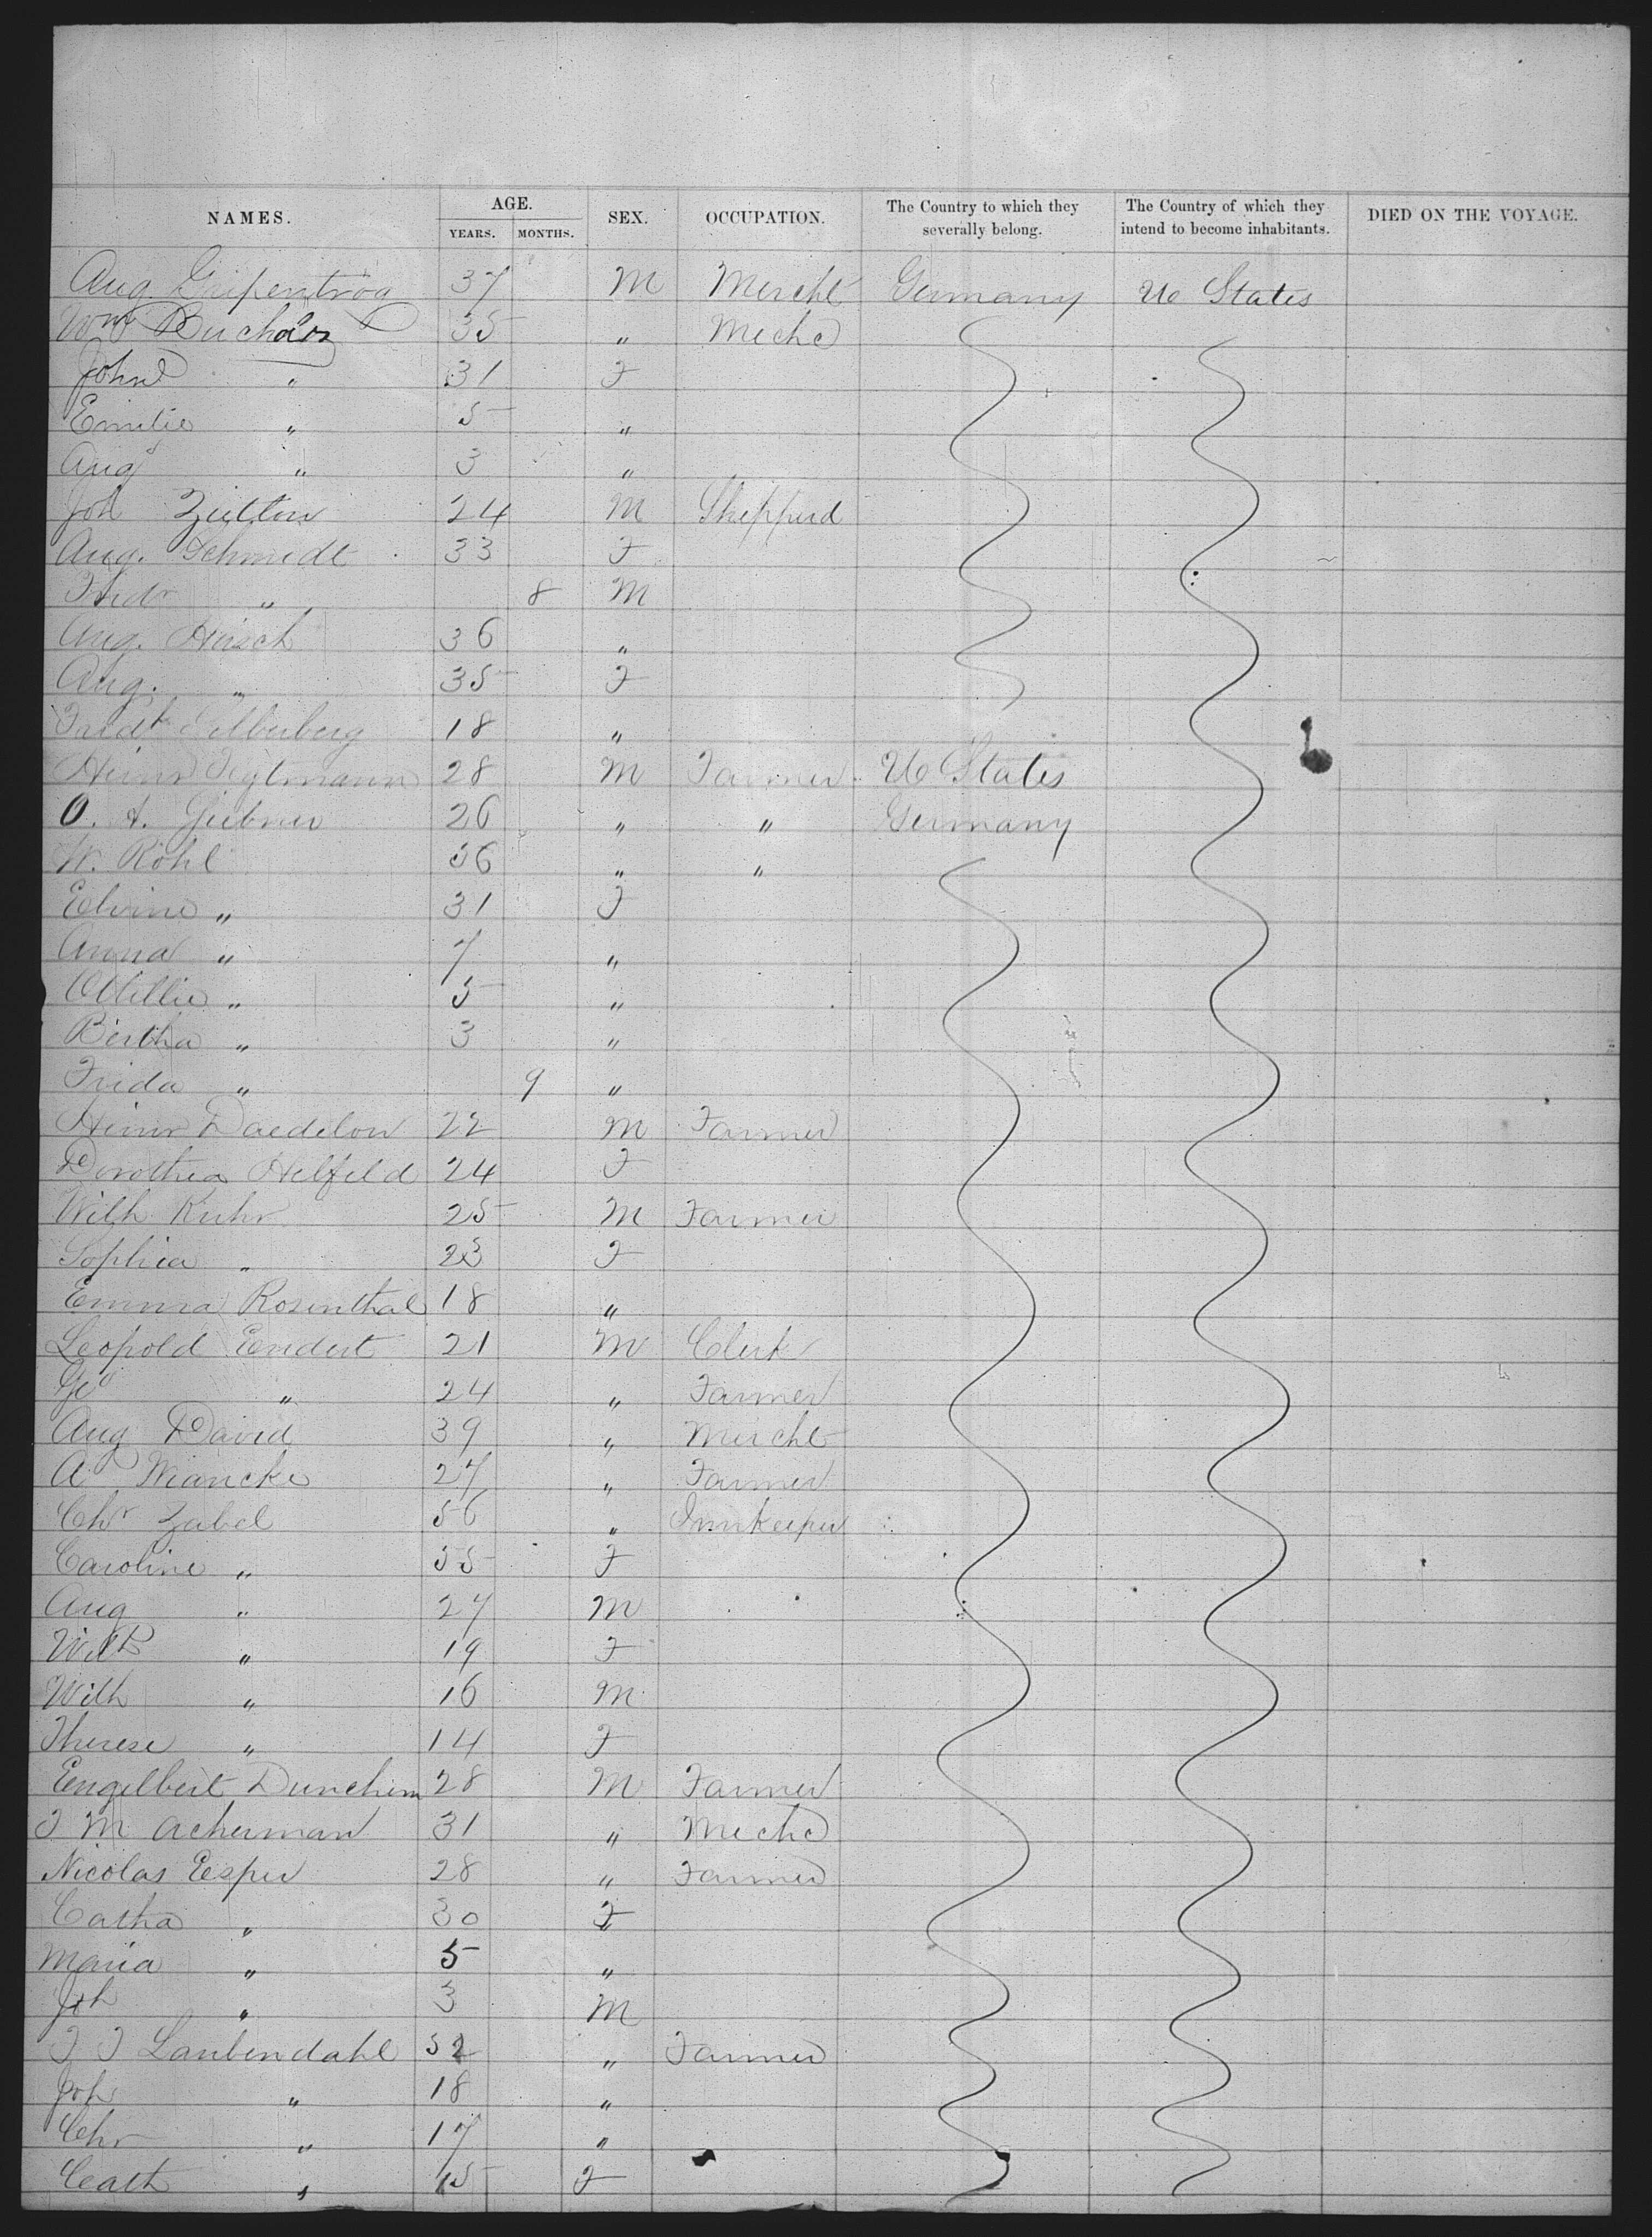 NAMES. AGE. YEARS. MONTHS. SEX. OCCUPATION. The Country to which they severally belong. The Country of which they intend to become inhabitants. DIED ON THE VOYAGE.
Aug. Gripentrog 37 M Mercht Germany U States
Wm Buchholz 35 " Mechc
Johne " 31 F
Emilie " 5 "
Augt " 3 "
Joh Zietlow 24 M Shepperd
Aug. Schmidt 33 F
Fridr " 8 M
Aug. Hirsch 36 "
Aug. " 35 F
Fredk Silberberg 18 "
Heinr Tegtmann 28 M Farmer U States
O. A. Giebner 26 " " Germany
W. Röhl 36 " "
Elvine " 31 F
Anna " 7 "
Ottillie " 5 "
Bertha " 3 "
Frida " 9 "
Heinr Daedelow 22 M Farmer
Dorothea Helfeld 24 F
Wilh Kuhr 25 M Farmer
Sophia " 23 F
Emma Rosenthal 18 "
Leopold Endert 21 M Clerk
Geo " 24 " Farmer
Aug David 39 " Mercht
A Wiancke 27 " Farmer
Chr Zabel 56 " Innkeeper
Caroline " 55 F
Aug " 27 M
Wilh " 19 F
Wilh " 16 M
Therese " 14 F
Engelbert Dunchem 28 M Farmer
J M Acherman 31 " Mechc
Nicolas Esper 28 " Farmer
Catha " 30 F
Maria " 5 "
Joh " 3 M
J J Laubendahl 52 " Farmer
Joh " 18 "
Chr " 17 "
Cath " 15 F